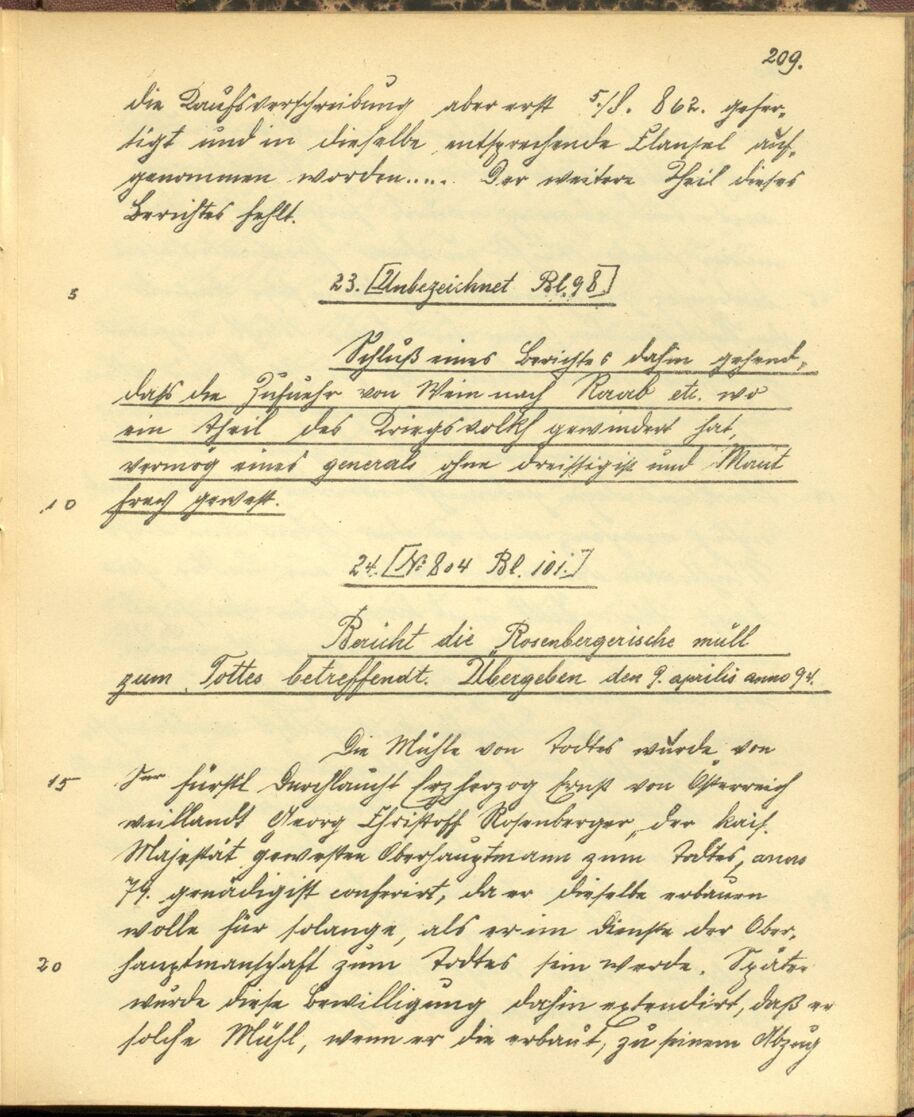 209.
die Kaufsverschreibung aber erst 5./8. 862. gefer-
tigt und in dieselbe entsprechende Clausel auf-
genommen worden..... Der weitere Theil dieses
Berichtes fehlt.
5 23. [Unbezeichnet Bl. 98.]
Schluß eines Berichtes dahin gehend,
dass die Zufuehr von Wein nach Raab etc. wo
ein theil des Kriegsvolkh gewindert hat,
vermög eines generals ohne dreissigist und Maut
10 frey gewest.
24. [No 804 Bl. 101.]
Bericht die Rosenbergerische müll
zum Tottes betreffendt. Übergeben den 9. aprilis anno 94.
Die Mühle von Todtes wurde von
15 Sr fürstl Durchlaucht Erzherzog Ernst von Österreich
weillandt Georg Christoff Rosenberger, der kais.
Majestät gewesten Oberhauptmann zum Todtes, anno
79. genädigist conferirt, da er dieselbe erbauen
wolle für solange, als er im Dienste der Ober-
20 hauptmanschaft zum Todtes sein werde. Später
wurde diese Bewilligung dahin extendirt, daß er
solche Mühl, wenn er die erbaut, zu seinem Abzug